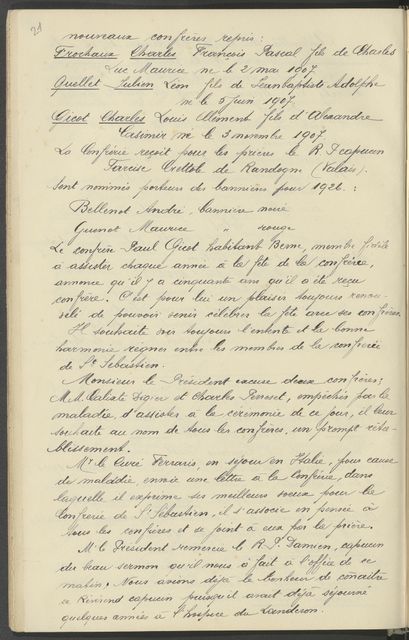 21
nouveaux confrères repris :
Frochaux Charles François Pascal fils de Charles
Luc Maurice né le 2 mai 1907
Quellet Julien Léon fils de Jeanbaptiste Adolphe
né le 5 juin 1907.
Gicot Charles Louis Clément fils d'Alexandre
Casimir né le 3 novembre 1907
La Confrérie reçoit pour les prières le R. P. capucin
de Randogne (Valais).
Sont nommés porteurs des bannières pour 1926 :
Bellenot André, bannière noire
Guenot Maurice " rouge
Le confrère Paul Gicot habitant Berne, membre fidèle
à assister chaque année à la fête de la confrérie,
annonce qu'il y a cinquante ans qu'il a été reçu
confrère. C'est pour lui un plaisir toujours renou-
velé de pouvoir venir célébrer la fête avec ses confrères.
Il souhaite voir toujours l'entente et la bonne
harmonie régner entre les membres de la confrérie
de St Sébastien.
Monsieur le Président excuse deux confrères;
M.M. Calixte et Charles Perroset, empêchés par la
maladie, d'assister à la cérémonie de ce jour, il leur
souhaite au nom de tous les confrères, un prompt réta-
blissement.
Mr le Curé Ferraris, en séjour en Italie, pour cause
de maladie envoie une lettre à la Confrérie, dans
laquelle il exprime ses meilleurs voeux pour la
Confrérie de St Sébastien, il s'associe en pensée à
tous les confrères et se joint à eux par la prière.
M. le Président remercie le R. P. Damien, capucin
du beau sermon qu'il nous a fait à l'office de ce
matin. Nous avions déjà le bonheur de connaître
ce Révérend capucin puisqu'il avait déjà séjourné
quelques années à l'hospice du Landeron.